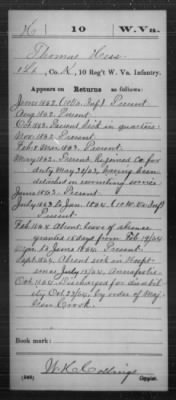 H | 10 | W. Va.
Thomas Hess
1 Lt., Co. K, 10 Reg't W. Va. Infantry.
Appears on Returns as follows:
June 1862. Present
Aug 1862. Present.
Oct. 1862. Present Sick in quarters.
Nov. 1862. Present.
Feb. & Mar. 1863. Present.
May 1863. Present. Rejoined Co for
duty May 23/63, having been
detached in recruiting service
June 1863. Present.
July 1863 to Jan. 1864. Co 10 W. Va. Inft
Present.
Feb. 1864. Absent. Leave of absence
granted 15 days from Feb. 19/64
to June 1864. Present.
Sept. 1864. Absent sick in Hospt.
since July 15/64. Annapolis
Oct. 1864. Discharged for disabil-
ity Oct. 23/64, by order of Maj.
Gen Crook.
Book mark:
W. K. Collings
Copyist.